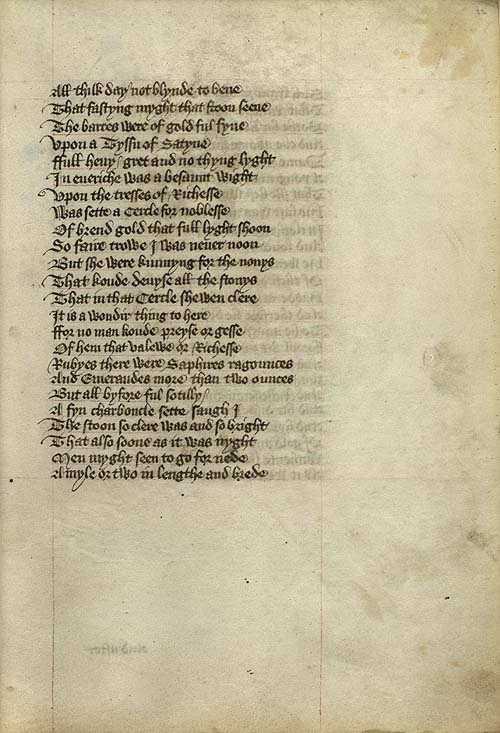 All thilk day not blynde to bene
That fastyng myght that stoon seene
The barres were of gold ful fyne
Vpon a Tyssu of Satyne
Ffull heuy gret and no thyng lyght
In eueriche was a besaunt wight
Vpon the tresses of Richesse
Was sette a Cercle for noblesse
Of brend gold that full lyght shoon
So faire trowe I was neuer noon
But she were kunnyng for the nonys
That koude deuyse all the stonys
That in that Cercle shewen clere
It is a wondir thing to here
Ffor no man koude preyse or gesse
Of hem that valewe or Richesse
Rubyes there were Saphires ragounces
And Emeraudes more than two ounces
But all byfore ful sotilly
A fyn charboncle sette saugh I
The stoon so clere was and so bright
That also soone as it was nyght
Men myght seen to go for nede
A myle or two in lengthe and brede